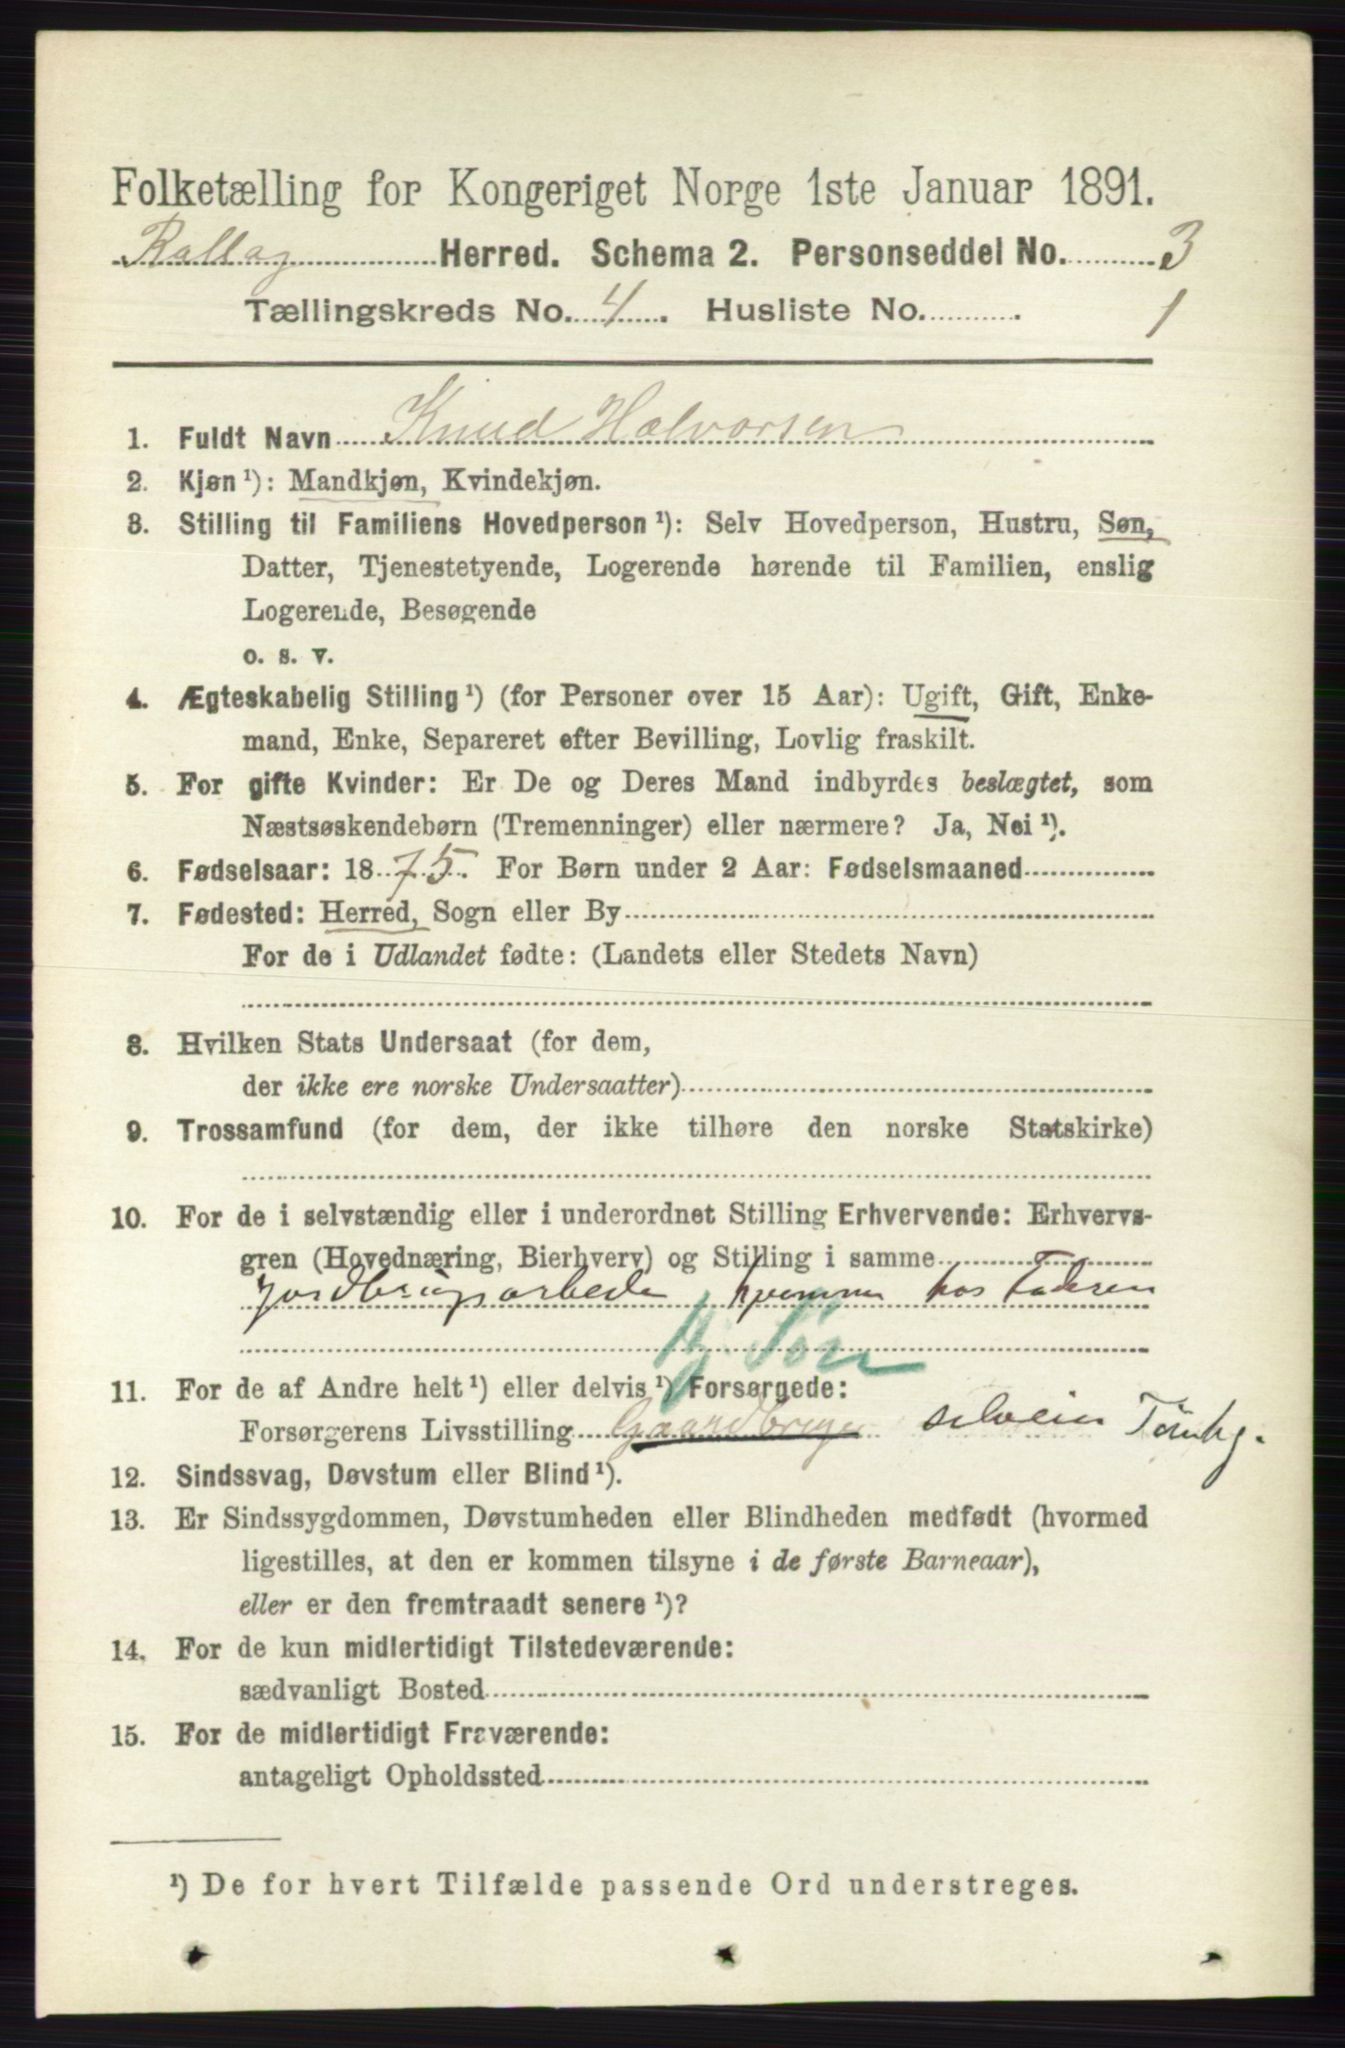 Folketælling for Kongeriget Norge 1ste Januar 1891.
Rollag Herred. Schema 2. Personseddel No. 3
Tællingskreds No. 4. Husliste No. 1
1. Fuldt Navn Knud Halvorsen
2. Kjøn ¹): Mandkjøn, Kvindekjøn.
3. Stilling til Familiens Hovedperson ¹): Selv Hovedperson, Hustru, Søn,
Datter, Tjenestetyende, Logerende hørende til Familien, enslig
Logerende, Besøgende
o. s. v.
4. Ægteskabelig Stilling ¹) (for Personer over 15 Aar): Ugift, Gift, Enke-
mand, Enke, Separeret efter Bevilling, Lovlig fraskilt.
5. For gifte Kvinder: Er De og Deres Mand indbyrdes beslægtet, som
Næstsøskendebørn (Tremenninger) eller nærmere? Ja, Nei ¹).
6. Fødselsaar: 1875. For Børn under 2 Aar: Fødselsmaaned
7. Fødested: Herred, Sogn eller By
For de i Udlandet fødte: (Landets eller Stedets Navn)
8. Hvilken Stats Undersaat (for dem,
der ikke ere norske Undersaatter)
9. Trossamfund (for dem, der ikke tilhøre den norske Statskirke)
10. For de i selvstændig eller i underordnet Stilling Erhvervende: Erhvervs-
gren (Hovednæring, Bierhverv) og Stilling i samme
Jordbrugsarbeide hjemme hos Faderen
Søn
11. For de af Andre helt ¹) eller delvis ¹) Forsørgede:
Forsørgerens Livsstilling Gaardbruger selveier
12. Sindssvag, Døvstum eller Blind ¹).
13. Er Sindssygdommen, Døvstumheden eller Blindheden medfødt (hvormed
ligestilles, at den er kommen tilsyne i de første Barneaar),
eller er den fremtraadt senere ¹)?
14. For de kun midlertidigt Tilstedeværende:
sædvanligt Bosted
15. For de midlertidigt Fraværende:
antageligt Opholdssted
¹) De for hvert Tilfælde passende Ord understreges.